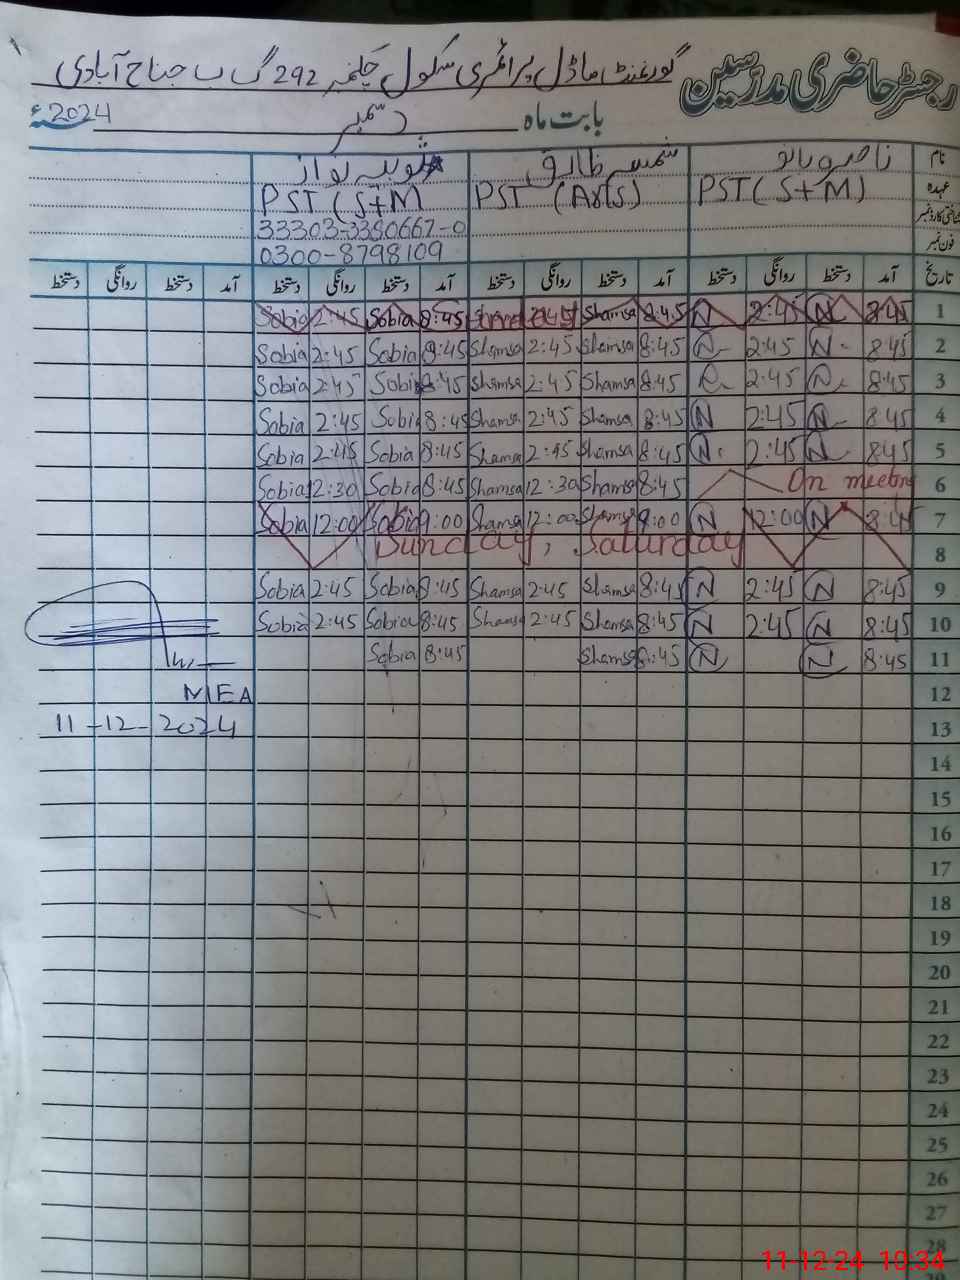 رجسٹر حاضری مدرسین گورنمنٹ ماڈل پرائمری سکول چکنمبر 292 گ ب جناح آبادی
بابت ماہ دسمبر 2024ء
نام ناصرہ بانو شمسہ طارق ثوبیہ نواز
عہدہ PST (S+M) PST (Arts) PST (S+M)
شناختی کارڈ نمبر 33303-3380667-0
فون نمبر 0300-8798109
تاریخ آمد دستخط روانگی دستخط آمد دستخط روانگی دستخط آمد دستخط روانگی دستخط آمد دستخط روانگی دستخط
1 8:45 N 2:45 N 8:45 Shamsa 2:45 8:45 Sobia 2:45 Sobia
2 8:45 N 2:45 N 8:45 Shamsa 2:45 Shamsa 8:45 Sobia 2:45 Sobia
3 8:45 N 2:45 N 8:45 Shamsa 2:45 Shamsa 8:45 Sobia 2:45 Sobia
4 8:45 N 2:45 N 8:45 Shamsa 2:45 Shamsa 8:45 Sobia 2:45 Sobia
5 8:45 N 2:45 N 8:45 Shamsa 2:45 Shamsa 8:45 Sobia 2:45 Sobia
6 On meeting 8:45 Shamsa 12:30 Shamsa 8:45 Sobia 12:30 Sobia
7 8:45 N 12:00 N 9:00 Shamsa 12:00 Shamsa 9:00 Sobia 12:00 Sobia
8 Sunday, Saturday
9 8:45 N 2:45 N 8:45 Shamsa 2:45 Shamsa 8:45 Sobia 2:45 Sobia
10 8:45 N 2:45 N 8:45 Shamsa 2:45 Shamsa 8:45 Sobia 2:45 Sobia
11 8:45 N N 8:45 Shamsa 8:45 Sobia
12 MEA
13 11-12-2024
14
15
16
17
18
19
20
21
22
23
24
25
26
27
28
11-12-24 10:34